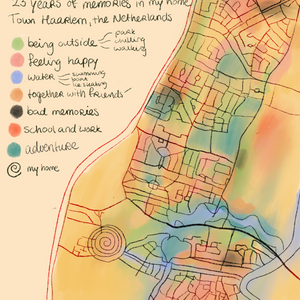 23 years of memories in my home
Town Haarlem, the Netherlands
being outside
park
walking
feeling happy
water
swimming
boat
ice skating
together with friends
bad memories
school and work
adventure
my home